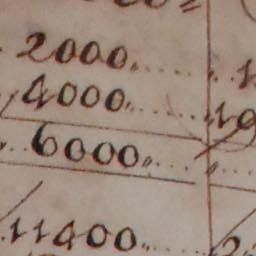 2000
4000
6000
11400